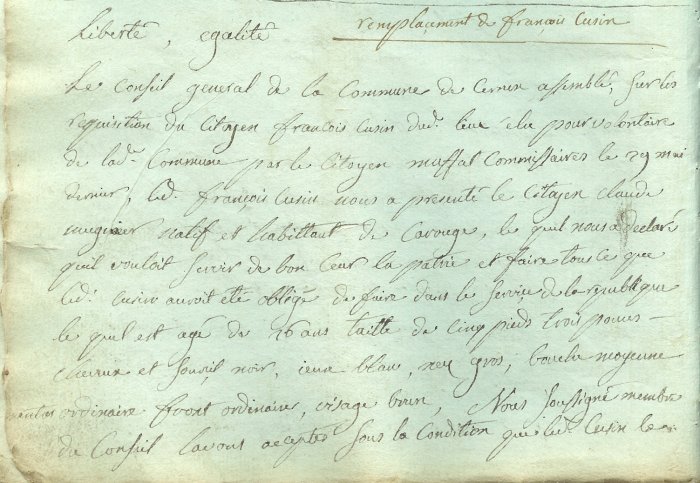 remplaçement de françois Cusin
Liberté, egalité
Le Conseil general de la Commune de Cernex assemblé, sur les
requisition du Citoyen françois Cusin dud. lieu élu pour volontaire
de lad. Commune par le Citoyen muffat Commissaires le 29 mai
dernier, led. françois Cusin nous a presenté le Citoyen claude
mugnier natif et habittant de Carouge, le quil nous a declaré
quil vouloit servir de bon Ceur la patrie et faire tous ce que
led. Cusin auroit eté obligé de faire dans le service de la republique
le quel est agé de 26 ans taille de cinq pieds trois pouces –
cheveux et sourcil noir, ieux blau, nez gros, bouche moyeune
menton ordinaire front ordinaire, visage brun, Nous soussigné membre
du Conseil lavons accepter sous la Condition que led. Cusin le